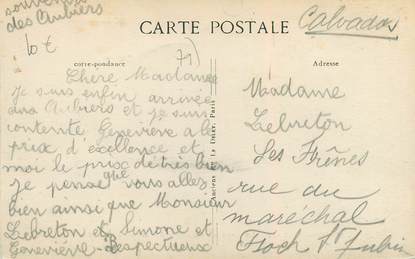 souvenir
des Aubiers
10 €
79)
CARTE POSTALE
Calvados
corre-pondance
Adresse
Chère Madame
je suis enfin arrivée
aux Aubiers et je suis
contente Geneviève a le
prix d'excellence et
moi le prix de très bien
je pense que vous allez
bien ainsi que Monsieur
Lebreton et Simone et
Geneviève - Respectueux
Paris
Madame
Lebreton
Les Frênes
rue du
maréchal
Foch St Aubin